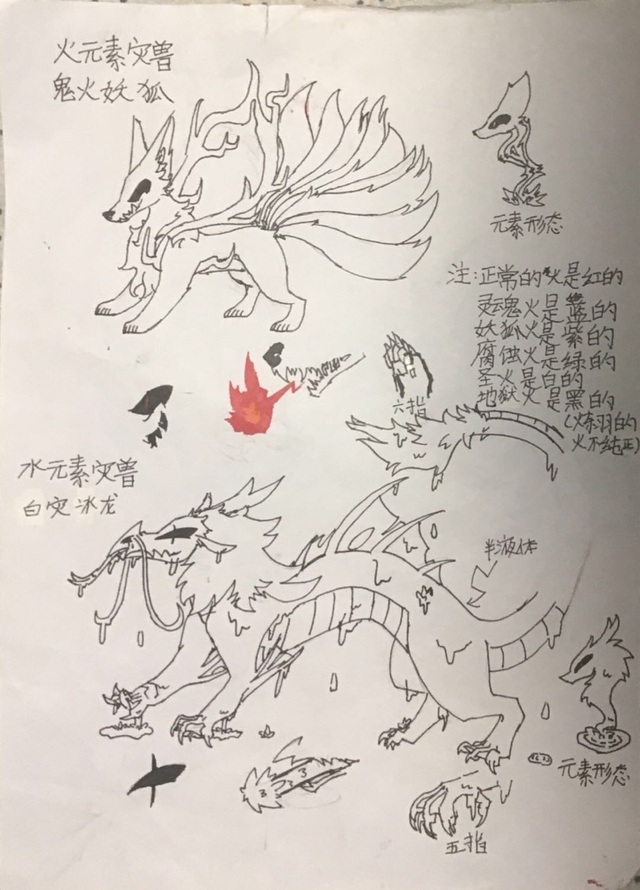 火元素灾兽
鬼火妖狐
元素形态
注:正常的火是红的
灵鬼火是蓝的
妖狐火是紫的
腐蚀火是绿的
圣火是白的
地狱火是黑的
火不纯正)
六指
水元素灾兽
白灾冰龙
半液体
元素形态
五指